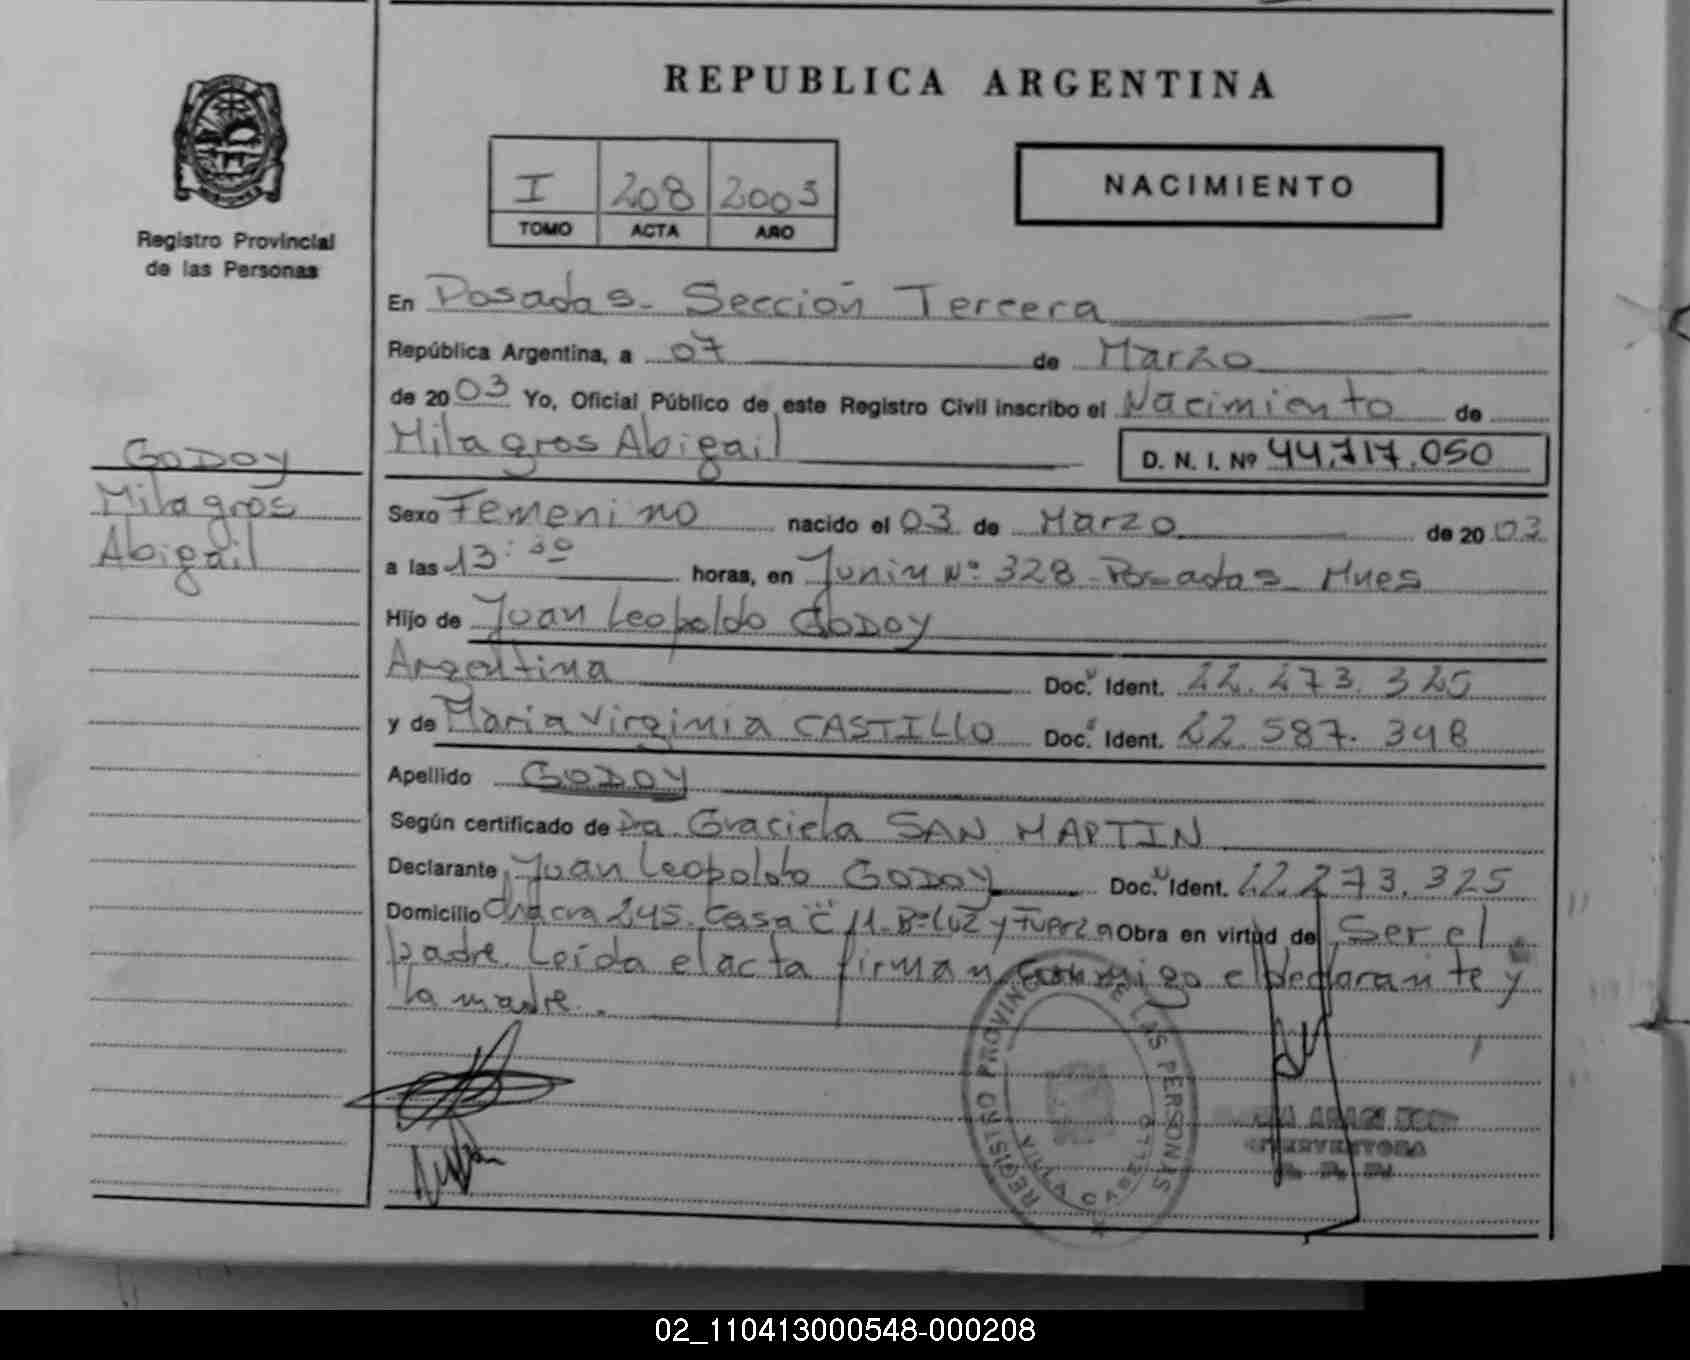 REPUBLICA ARGENTINA
I 208 2003
TOMO ACTA AÑO
NACIMIENTO
Registro Provincial
de las Personas
En Posadas - Sección Tercera
República Argentina, a 07 de Marzo
de 2003 Yo, Oficial Público de este Registro Civil inscribo el Nacimiento de
Milagros Abigail D. N. I. Nº 44.717.050
GODOY
Milagros
Abigail
Sexo Femenino nacido el 03 de Marzo de 2003
a las 13:30 horas, en Junin Nº 328 - Posadas - Mnes
Hijo de Juan Leopoldo GODOY
Argentina Doc. Ident. 22.273.325
y de Maria Virginia CASTILLO Doc. Ident. 22.587.348
Apellido GODOY
Según certificado de Dra Graciela SAN MARTIN
Declarante Juan Leopoldo GODOY Doc. Ident. 22.273.325
Domicilio Chacra 245. Casa "C" 11. Bº Luz y Fuerza Obra en virtud de Ser el
padre. Leída el acta firman conmigo el declarante y
la madre.
REGISTRO PROVINCIAL DE LAS PERSONAS
VILLA CABELLO
INTERVENTORA
02_110413000548-000208